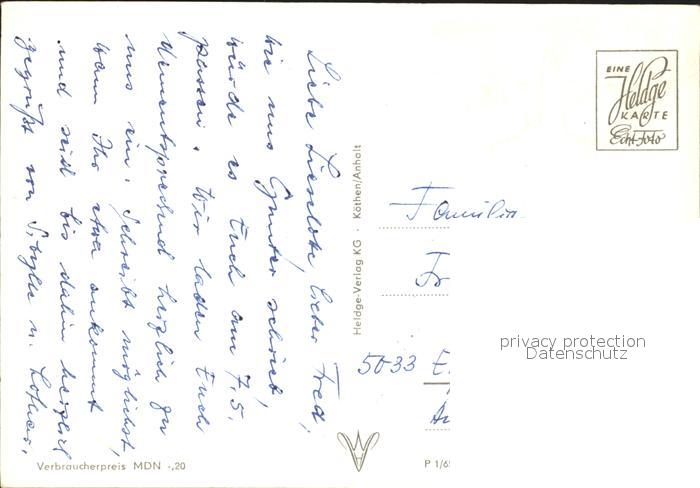 Liebe Liselotte, lieber Fred,
wie uns Günter schrieb,
würde es Euch am 7.5.
passen. Wir laden Euch
dementsprechend herzlich zu
uns ein. Schreibt möglichst,
wann Ihr etwa ankommt
und seid bis dahin herzlich
gegrüßt von Sibylle u. Lothar.
EINE
Heldge
KARTE
Echt Foto
Heldge-Verlag KG · Köthen/Anhalt
Familie
Fr
5033 E
privacy protection
Datenschutz
Verbraucherpreis MDN -,20
P 1/6